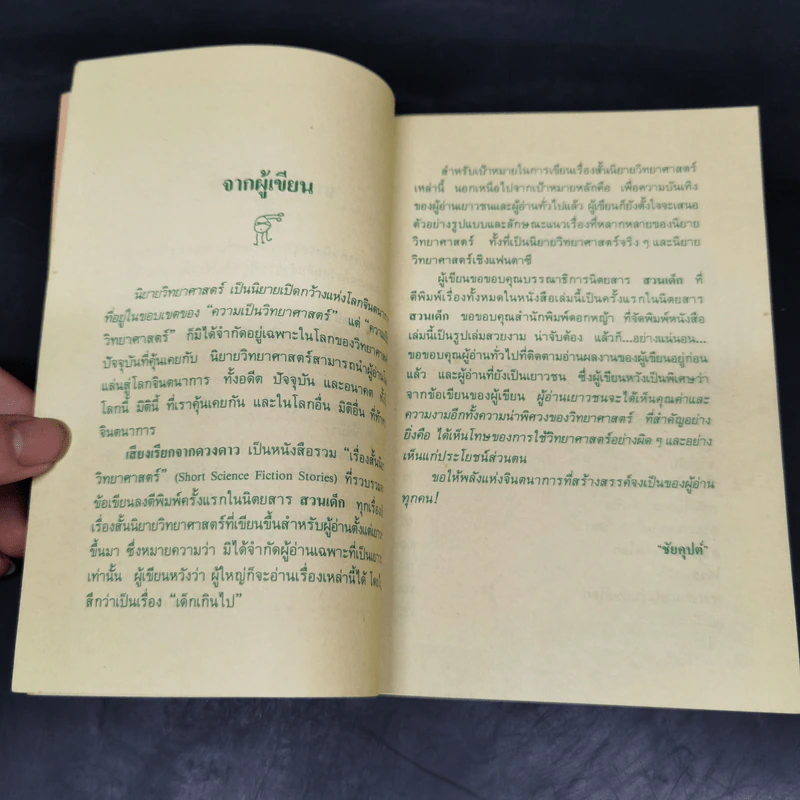 จากผู้เขียน
นิยายวิทยาศาสตร์ เป็นนิยายเปิดกว้างแห่งโลกจินตนาการ
ที่อยู่ในขอบเขตของ “ความเป็นวิทยาศาสตร์” แต่
วิทยาศาสตร์” ก็มิได้จำกัดอยู่เฉพาะในโลกของวิทยาศาส
ปัจจุบันที่คุ้นเคยกับ นิยายวิทยาศาสตร์สามารถนำผู้อ่าน
แล่นสู่โลกจินตนาการ ทั้งอดีต ปัจจุบัน และอนาคต
โลกนี้ มิตินี้ ที่เราคุ้นเคยกัน และในโลกอื่น มิติอื่น
จินตนาการ
เสียงเรียกจากดวงดาว เป็นหนังสือรวม “เรื่องสั้น
วิทยาศาสตร์” (Short Science Fiction Stories) ที่รวบรวม
ข้อเขียนลงตีพิมพ์ครั้งแรกในนิตยสาร สวนเด็ก ทุกเรื่อง
เรื่องสั้นนิยายวิทยาศาสตร์ที่เขียนขึ้นสำหรับผู้อ่านตั้งแต่
ขึ้นมา ซึ่งหมายความว่า มิได้จำกัดผู้อ่านเฉพาะที่เป็น
เท่านั้น ผู้เขียนหวังว่า ผู้ใหญ่ก็จะอ่านเรื่องเหล่านี้ได้
สึกว่าเป็นเรื่อง “เด็กเกินไป”
สำหรับเป้าหมายในการเขียนเรื่องสั้นนิยายวิทยาศาสตร์
เหล่านี้ นอกเหนือไปจากเป้าหมายหลักคือ เพื่อความบันเทิง
ของผู้อ่านเยาวชนและผู้อ่านทั่วไปแล้ว ผู้เขียนก็ยังตั้งใจจะเสนอ
ตัวอย่างรูปแบบและลักษณะแนวเรื่องที่หลากหลายของนิยาย
วิทยาศาสตร์ ทั้งที่เป็นนิยายวิทยาศาสตร์จริง ๆ และนิยาย
วิทยาศาสตร์เชิงแฟนตาซี
ผู้เขียนขอขอบคุณบรรณาธิการนิตยสาร สวนเด็ก ที่
ตีพิมพ์เรื่องทั้งหมดในหนังสือเล่มนี้เป็นครั้งแรกในนิตยสาร
สวนเด็ก ขอขอบคุณสำนักพิมพ์ดอกหญ้า ที่จัดพิมพ์หนังสือ
เล่มนี้เป็นรูปเล่มสวยงาม น่าจับต้อง แล้วก็...อย่างแน่นอน...
ขอขอบคุณผู้อ่านทั่วไปที่ติดตามอ่านผลงานของผู้เขียนอยู่ก่อน
แล้ว และผู้อ่านที่ยังเป็นเยาวชน ซึ่งผู้เขียนหวังเป็นพิเศษว่า
จากข้อเขียนของผู้เขียน ผู้อ่านเยาวชนจะได้เห็นคุณค่าและ
ความงามอีกทั้งความน่าพิศวงของวิทยาศาสตร์ ที่สำคัญอย่าง
ยิ่งคือ ได้เห็นโทษของการใช้วิทยาศาสตร์อย่างผิด ๆ และอย่าง
เห็นแก่ประโยชน์ส่วนตน
ขอให้พลังแห่งจินตนาการที่สร้างสรรค์จงเป็นของผู้อ่าน
ทุกคน!
“ชัยคุปต์”